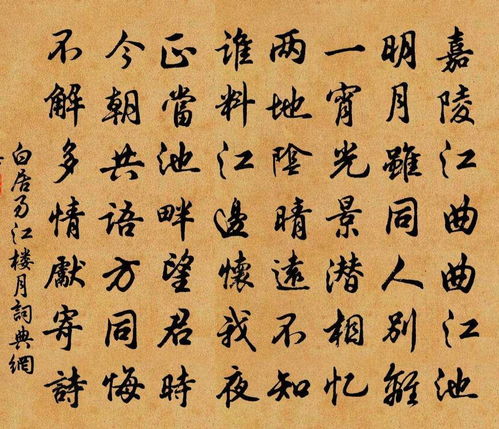 嘉陵江曲曲江池
明月雖同人别離
一宵光景潜相忆
两地陰晴遠不知
誰料江邊懷我夜
正當池畔望君時
今朝共語方同悔
不解多情獻寄詩
白居易江楼月詞典網